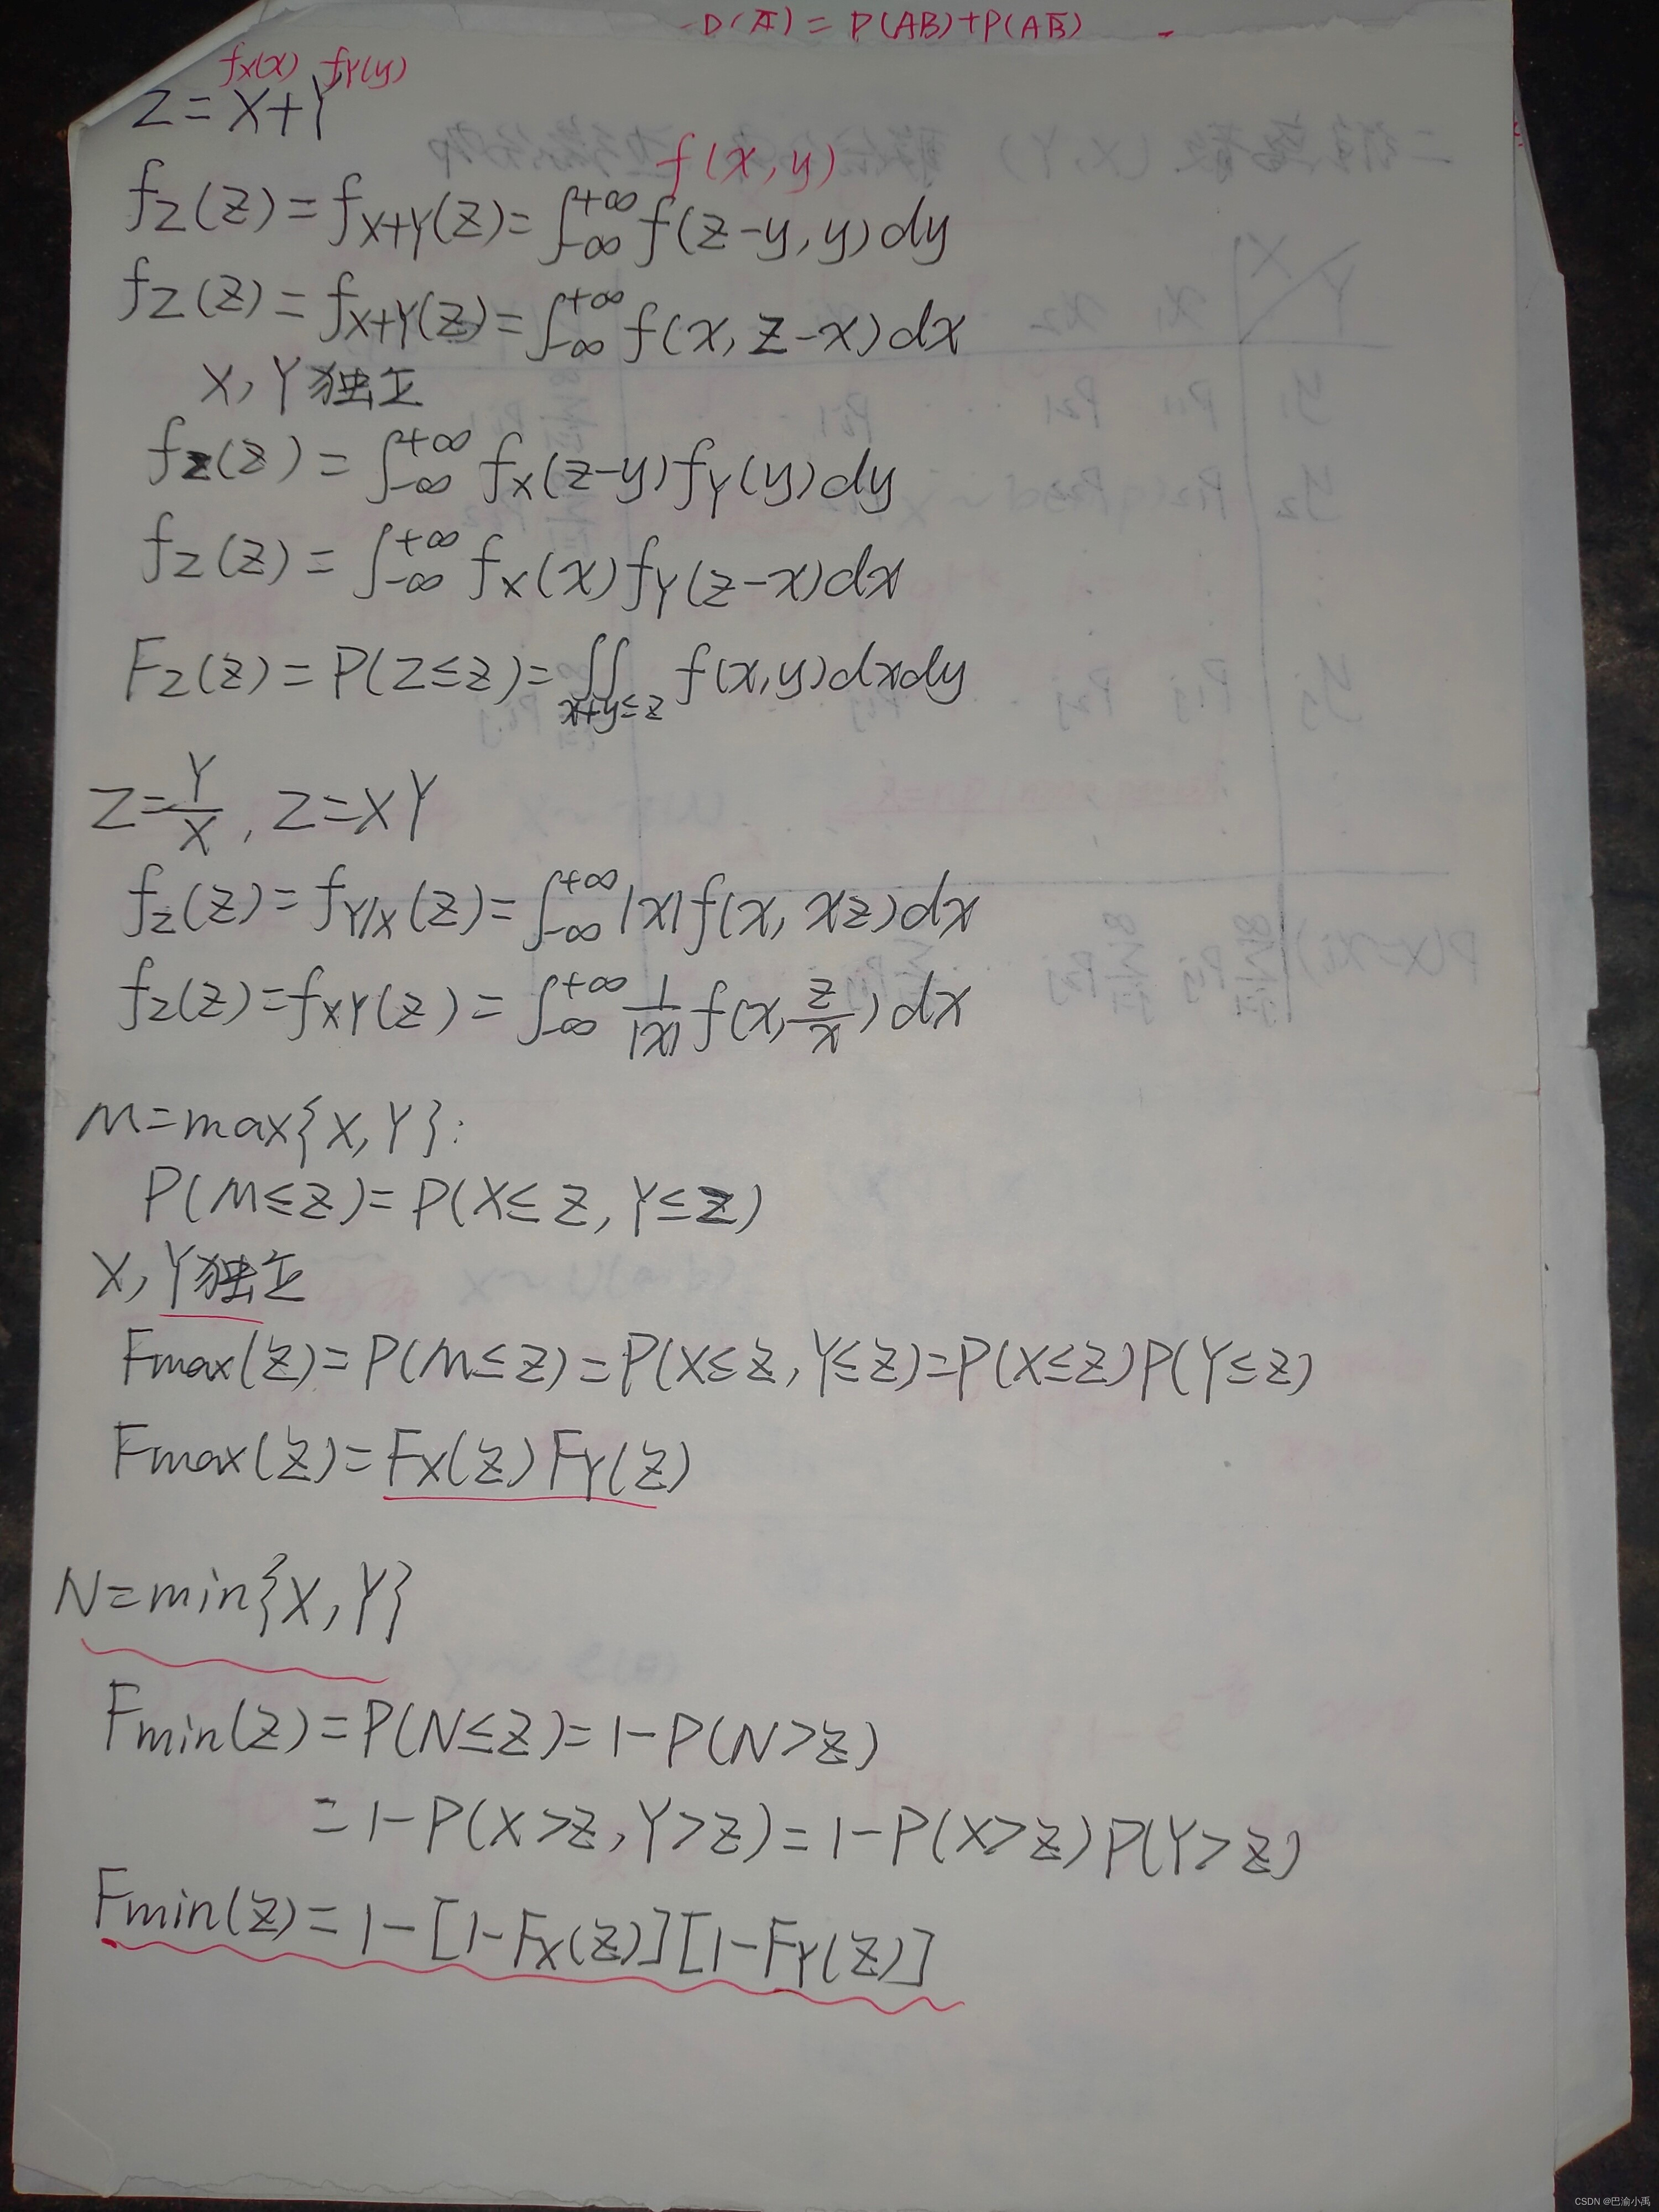 P(A) = P(AB)+P(AB̅)
fX(x) fY(y)
Z=X+Y
f(x,y)
fZ(z)=fX+Y(z)=∫_{-∞}^{+∞} f(z-y,y)dy
fZ(z)=fX+Y(z)=∫_{-∞}^{+∞} f(x,z-x)dx
X,Y独立
fZ(z)=∫_{-∞}^{+∞} fX(z-y)fY(y)dy
fZ(z)=∫_{-∞}^{+∞} fX(x)fY(z-x)dx
FZ(z)=P(Z≤z)=∬_{x+y≤z} f(x,y)dxdy
Z=Y/X, Z=XY
fZ(z)=fY/X(z)=∫_{-∞}^{+∞} |x|f(x,xz)dx
fZ(z)=fXY(z)=∫_{-∞}^{+∞} 1/|x| f(x,z/x)dx
M=max{X,Y}:
P(M≤z)=P(X≤z,Y≤z)
X,Y独立
Fmax(z)=P(M≤z)=P(X≤z,Y≤z)=P(X≤z)P(Y≤z)
Fmax(z)=FX(z)FY(z)
N=min{X,Y}
Fmin(z)=P(N≤z)=1-P(N>z)
=1-P(X>z,Y>z)=1-P(X>z)P(Y>z)
Fmin(z)=1-[1-FX(z)][1-FY(z)]
CSDN @巴渝小禹